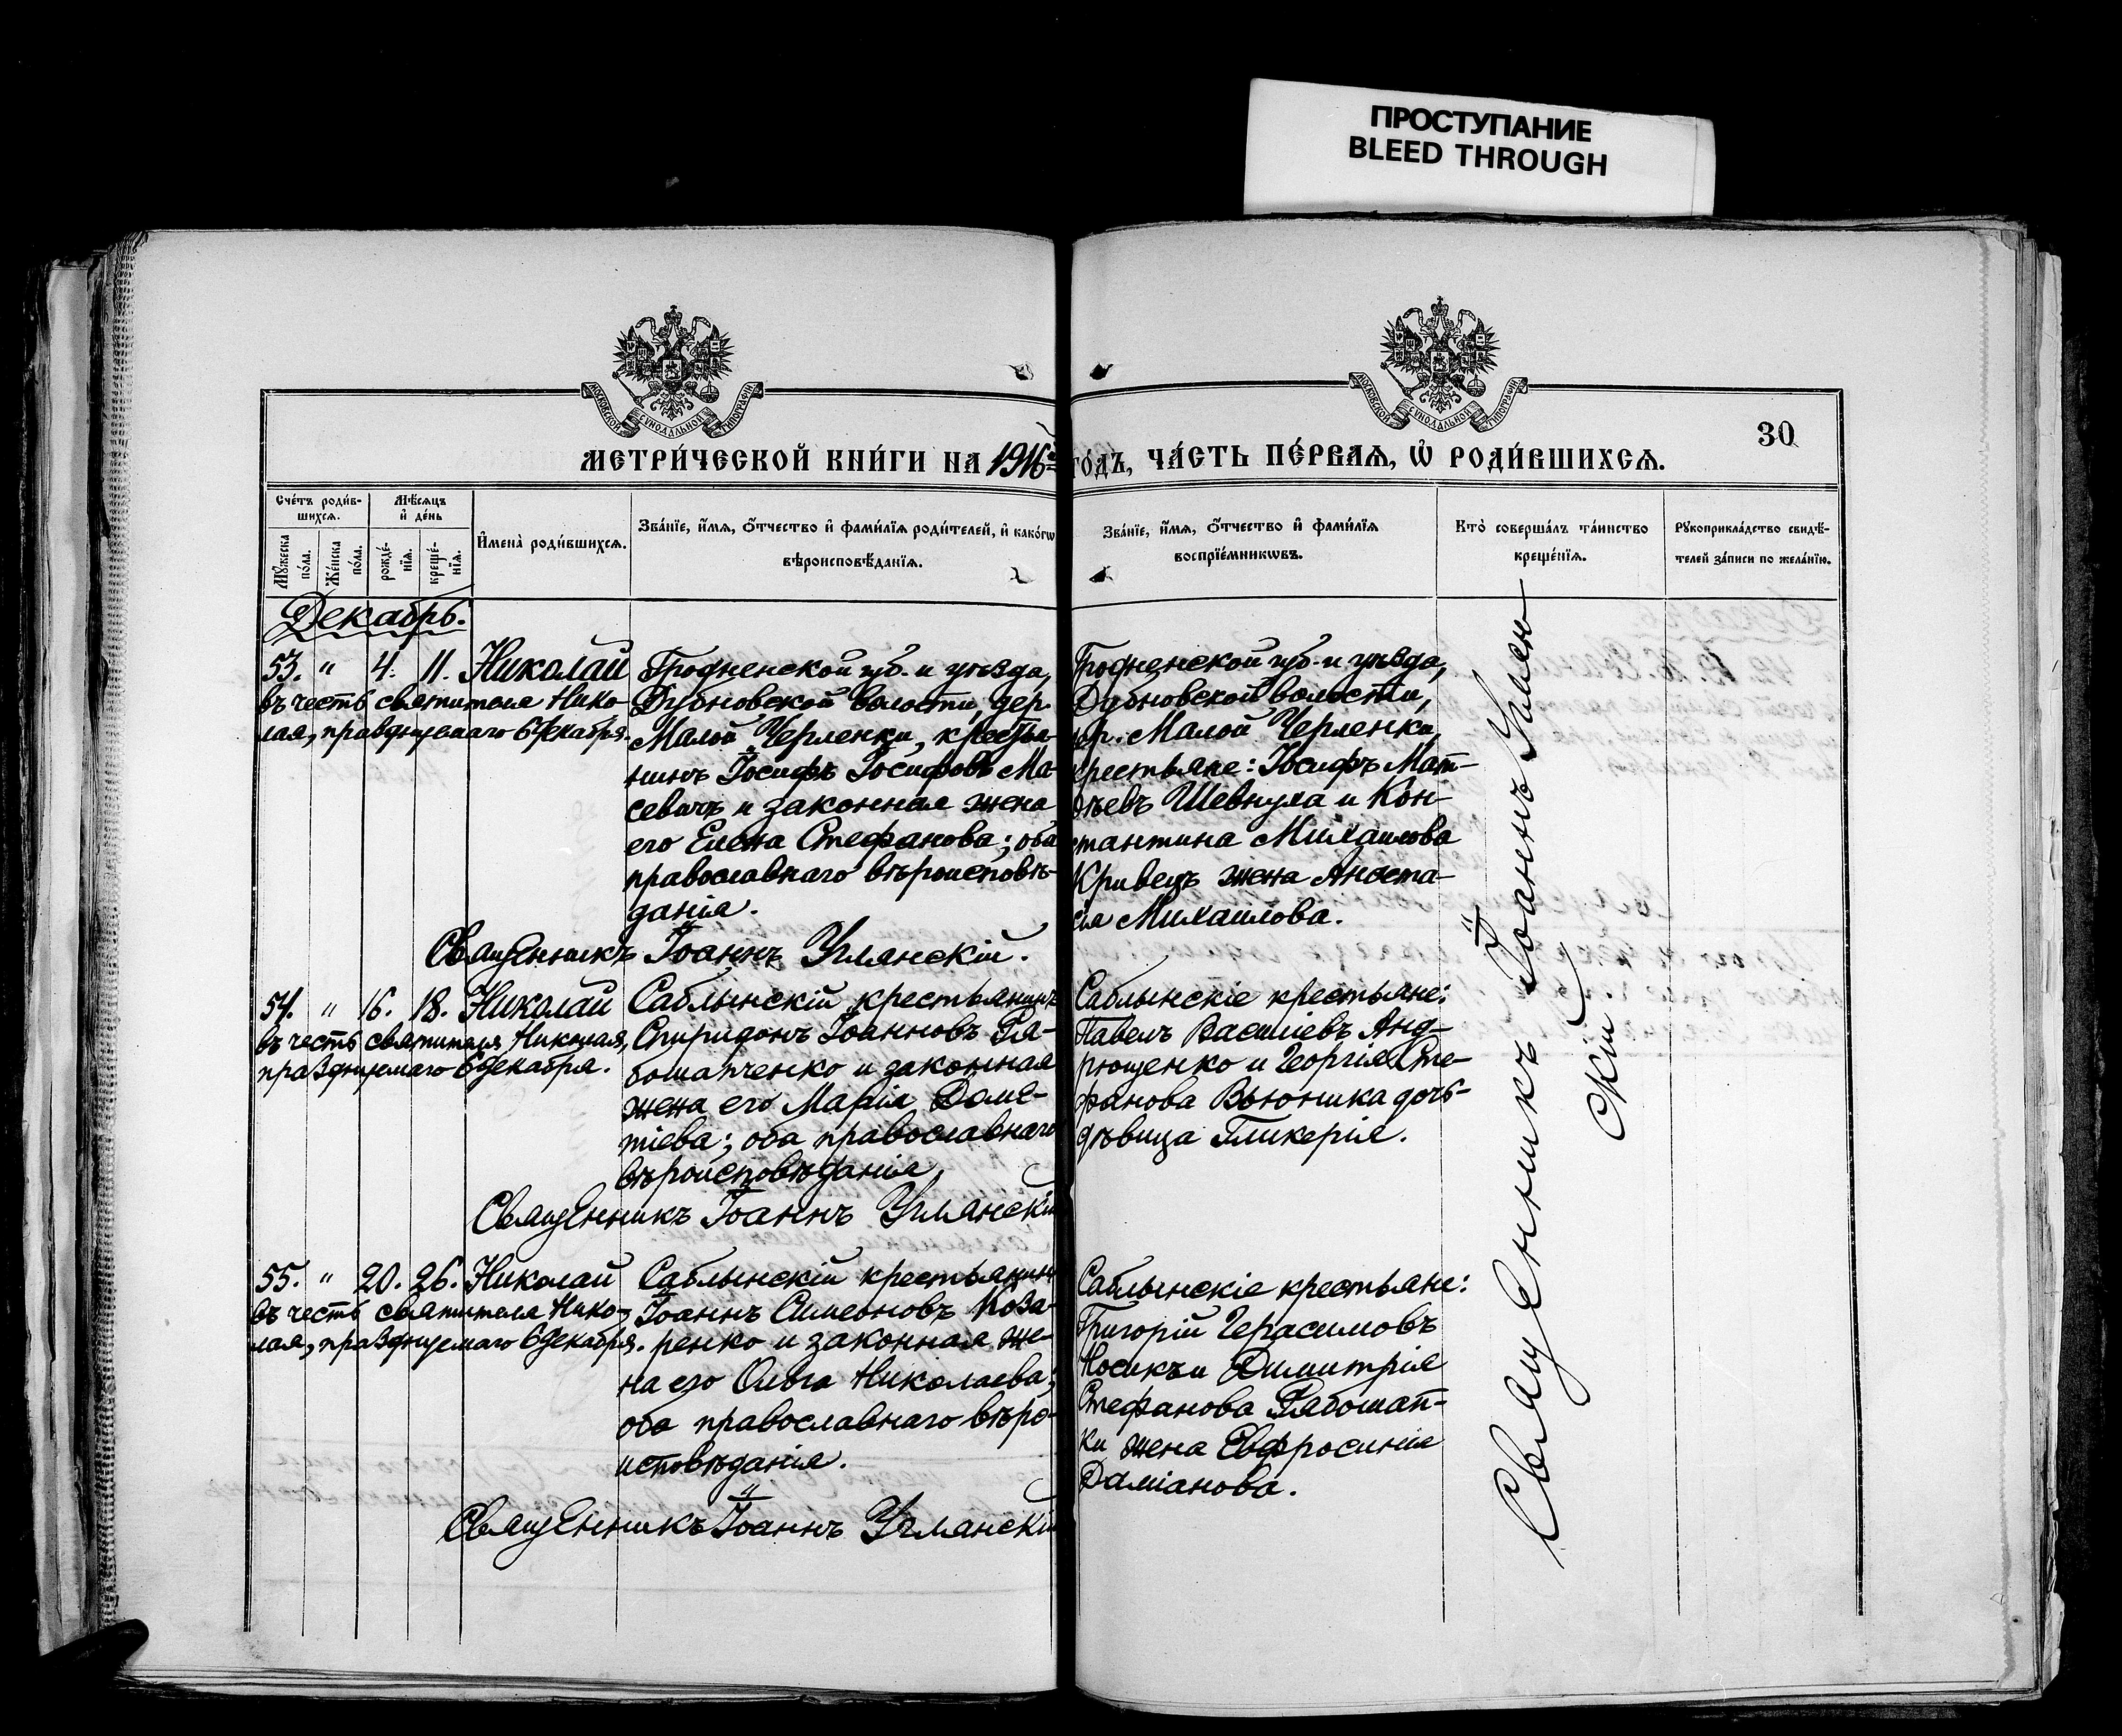 ПРОСТУПАНИЕ
BLEED THROUGH
МОСКОВСКОЙ СѴНОДАЛЬНОЙ ТИПОГРАФІИ
МОСКОВСКОЙ СѴНОДАЛЬНОЙ ТИПОГРАФІИ
30
МЕТРИ́ЧЕСКОЙ КНИ́ГИ НА 1916 го́дъ, ЧА́СТЬ ПЕ́РВАѦ, Ѡ҆ РОДИ́ВШИХСѦ.
Сче́тъ роди́в-
шихсѧ.
Мѣ́сѧцъ
и҆ де́нь
Мꙋ́жеска
по́ла.
Же́нска
по́ла.
рожде́-
нїѧ.
креще́-
нїѧ.
И҆мена̀ роди́вшихсѧ.
Зва́нїе, и҆́мѧ, ѻ҆́тчество и҆ фами́лїѧ роди́телей, и҆ како́гѡ
вѣроисповѣ́данїѧ.
Зва́нїе, и҆́мѧ, ѻ҆́тчество и҆ фами́лїѧ
воспрїе́мникѡвъ.
Кто̀ соверша́лъ та́инство
креще́нїѧ.
Рꙋкоприкла́дство свидѣ́-
телей за́писи по жела́нїю.
Декабрь.
53. " 4. 11. Николай
въ честь святителя Нико-
лая, празднуемаго 6 декабря.
Гродненской губ. и уѣзда,
Дубновской волости, дер.
Малой Черленки, крестья-
нинъ Іосифъ Іосифовъ Ма-
севичъ и законная жена
его Елена Стефанова; оба
православнаго вѣроисповѣ-
данія.
Гродненской губ. и уѣзда,
Дубновской волости,
дер. Малой Черленки,
крестьяне: Іосифъ Мат-
ѳѣевъ Шевкула и Кон-
стантина Михаилова
Кривецъ жена Анаста-
сія Михаилова.
Священникъ Іоаннъ Углянскій.
54. " 16. 18. Николай
въ честь святителя Николая,
празднуемаго 6 декабря.
Саблынскій крестьянинъ
Спиридонъ Іоанновъ Ря-
бошапченко и законная
жена его Марія Доме-
тіева; оба православнаго
вѣроисповѣданія
Саблынскіе крестьяне:
Павелъ Василіевъ Анд-
рющенко и Георгія Сте-
фанова Вьюника дочь-
дѣвица Гликерія.
Священникъ Іоаннъ Углянскій
55. " 20. 26. Николай
въ честь святителя Нико-
лая, празднуемаго 6 декабря.
Саблынскій крестьянинъ
Іоаннъ Симеоновъ Коза-
ренко и законная же-
на его Ольга Николаева;
оба православнаго вѣро-
исповѣданія.
Саблынскіе крестьяне:
Григорій Герасимовъ
Носикъ и Димитрія
Стефанова Рябошап-
ки жена Евфросинія
Даміанова.
Священникъ Іоаннъ Углянскій
Священникъ Іоаннъ Углян-
скій